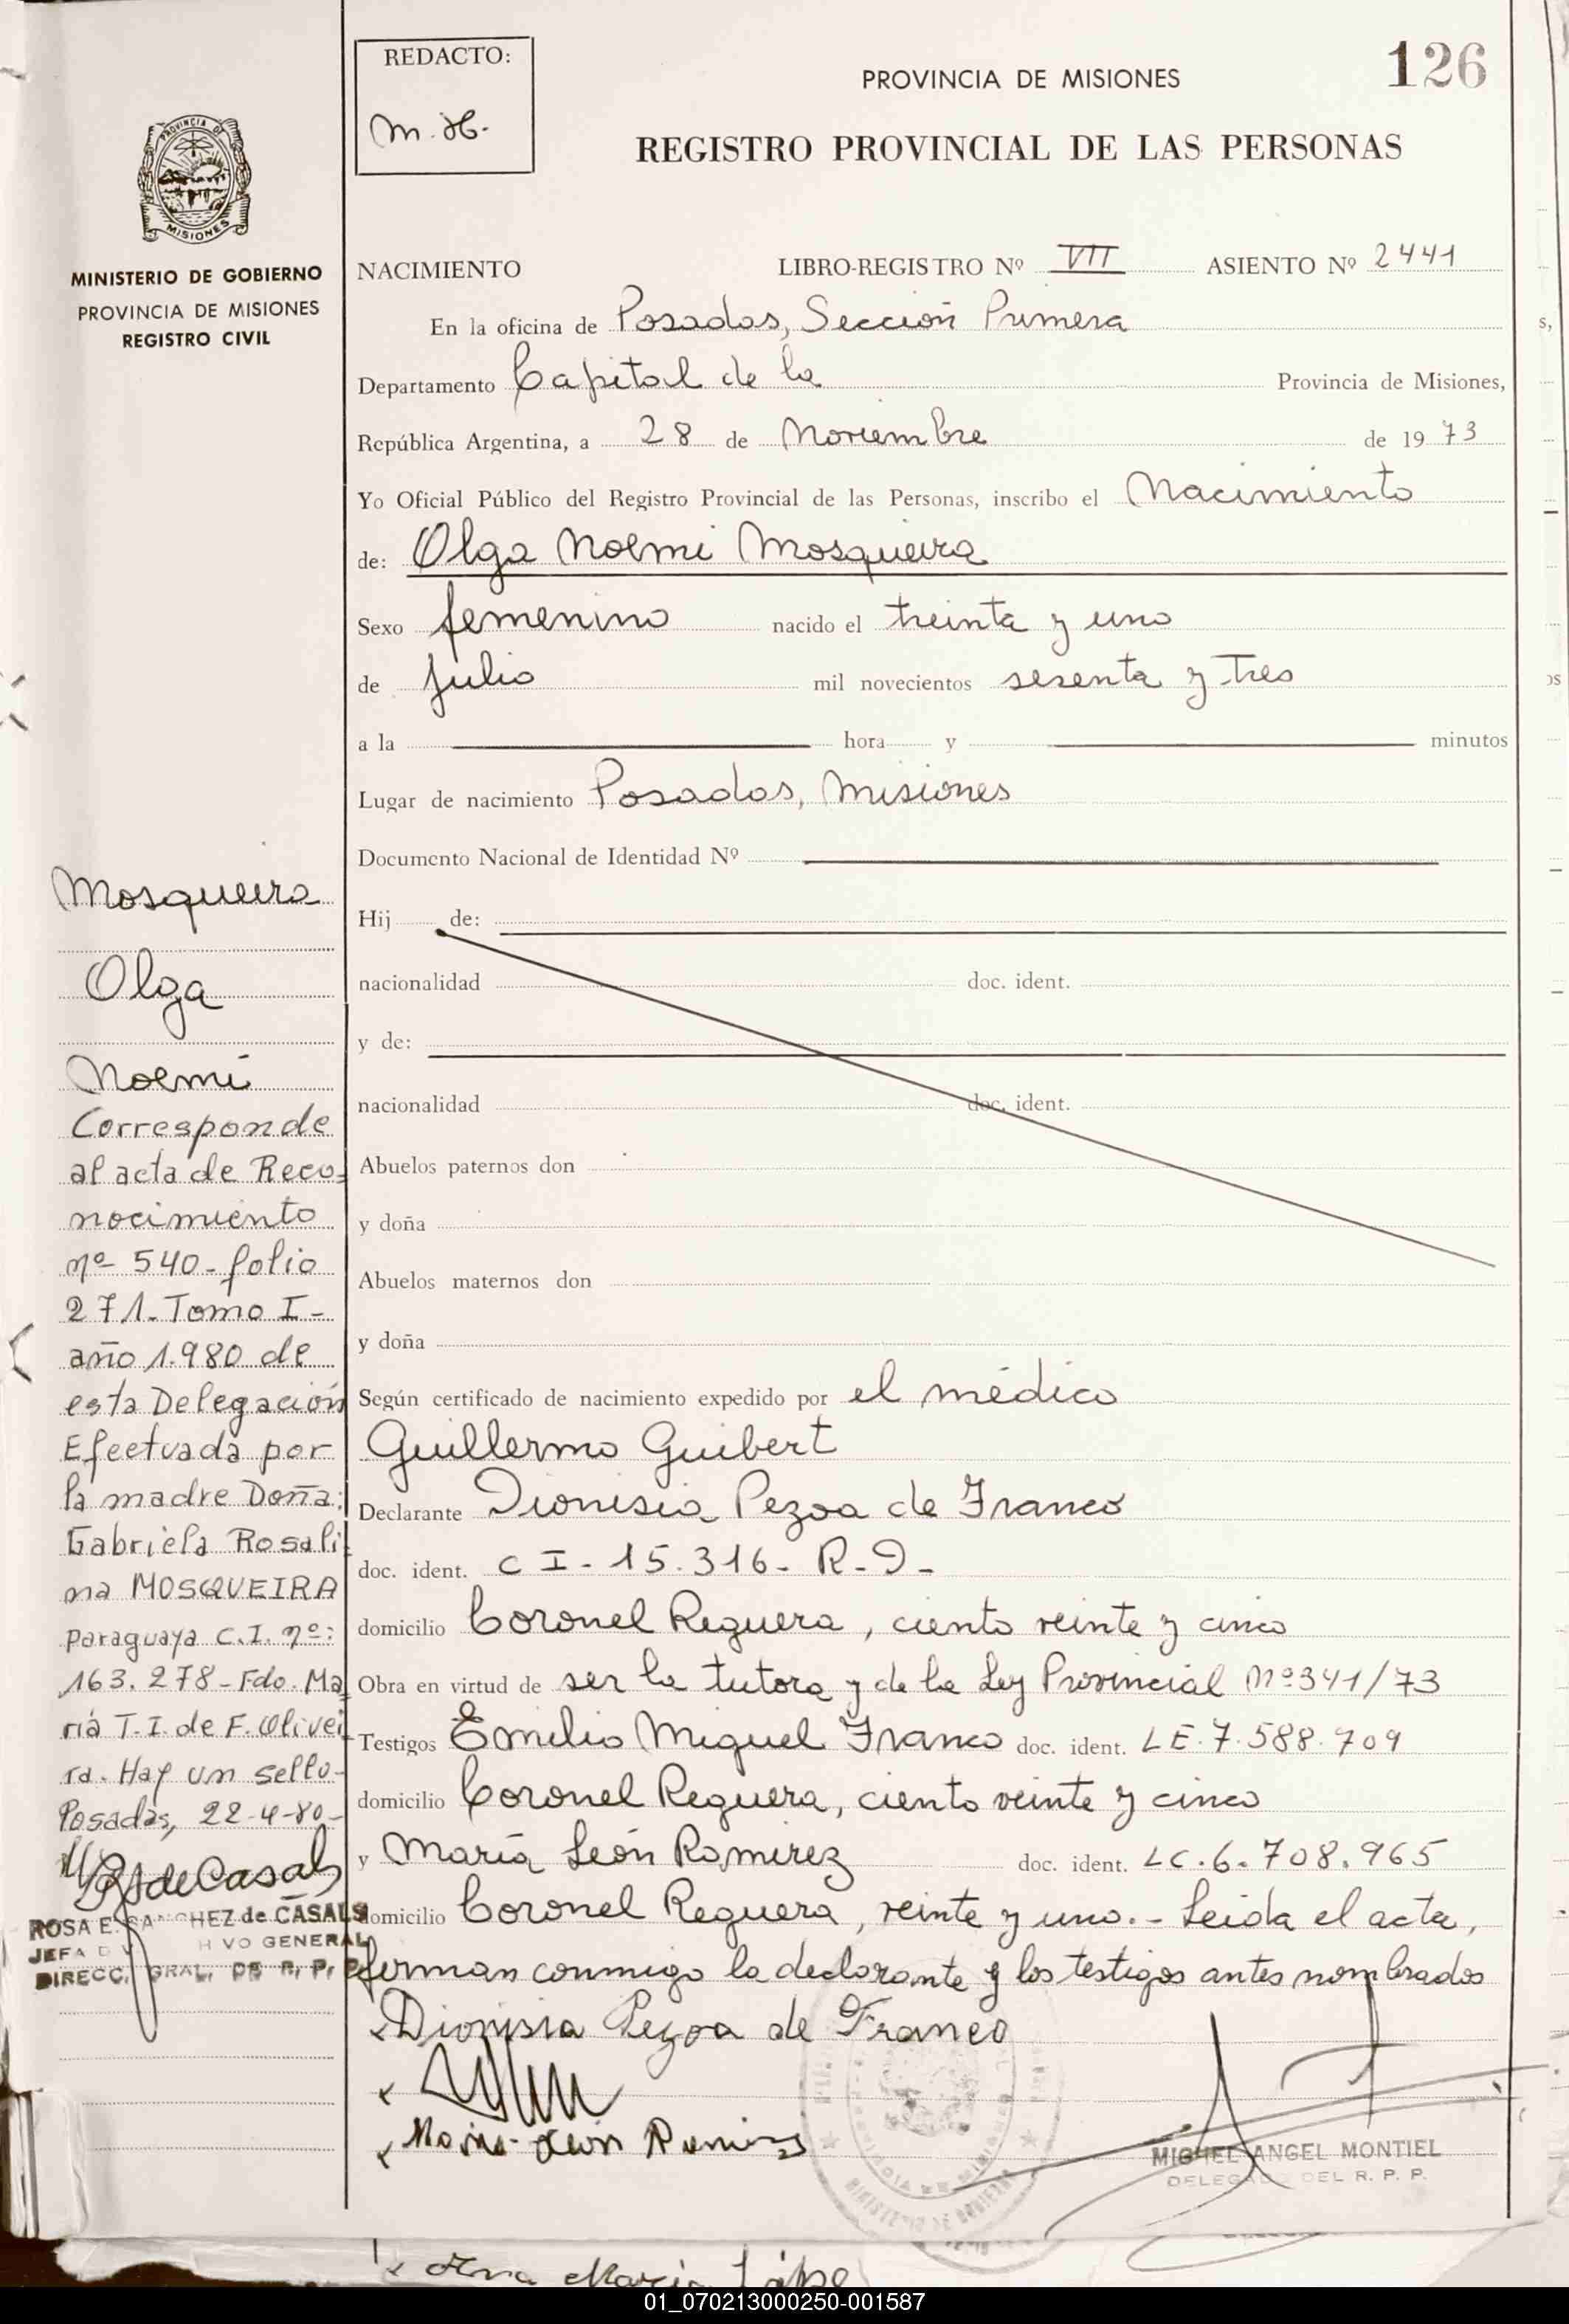 126
REDACTO:
M. H.
PROVINCIA DE MISIONES
REGISTRO PROVINCIAL DE LAS PERSONAS
PROVINCIA DE
MISIONES
MINISTERIO DE GOBIERNO
PROVINCIA DE MISIONES
REGISTRO CIVIL
NACIMIENTO LIBRO-REGISTRO Nº VII ASIENTO Nº 2441
En la oficina de Posadas, Sección Primera
Departamento Capital de la Provincia de Misiones,
República Argentina, a 28 de Noviembre de 1973
Yo Oficial Público del Registro Provincial de las Personas, inscribo el Nacimiento
de: Olga Noemi Mosqueira
Sexo femenino nacido el treinta y uno
de julio mil novecientos sesenta y tres
a la hora y minutos
Lugar de nacimiento Posadas, Misiones
Documento Nacional de Identidad Nº
Hij de:
nacionalidad doc. ident.
y de:
nacionalidad doc. ident.
Abuelos paternos don
y doña
Abuelos maternos don
y doña
Según certificado de nacimiento expedido por el médico
Guillermo Guibert
Declarante Dionisia Pezoa de Franco
doc. ident. C I - 15.316 - R-D-
domicilio Coronel Reguera, ciento veinte y cinco
Obra en virtud de ser la tutora y de la Ley Provincial Nº 341/73
Testigos Emilio Miguel Franco doc. ident. LE. 7.588.709
domicilio Coronel Reguera, ciento veinte y cinco
y María León Ramirez doc. ident. LC. 6.708.965
domicilio Coronel Reguera, veinte y uno.- Leida el acta,
firman conmigo la declarante y los testigos antes nombrados
Dionisia Pezoa de Franco
Maria Leon Ramirez
MIGUEL ANGEL MONTIEL
DELEGADO DEL R. P. P.
Mosqueira
Olga
Noemí
Corresponde
al acta de Reco-
nocimiento
nº 540- folio
271- Tomo I-
año 1.980 de
esta Delegación
Efectuada por
la madre Doña:
Gabriela Rosali
na MOSQUEIRA
paraguaya C.I. nº:
163.278- Fdo. Ma
ría T.I. de F. Olivei
ra. Hay un sello-
Posadas, 22-4-80-
de Casals
ROSA E. SANCHEZ de CASALS
JEFA GENERAL
DIRECC. GRAL. DE R. P. P.
01_070213000250-001587